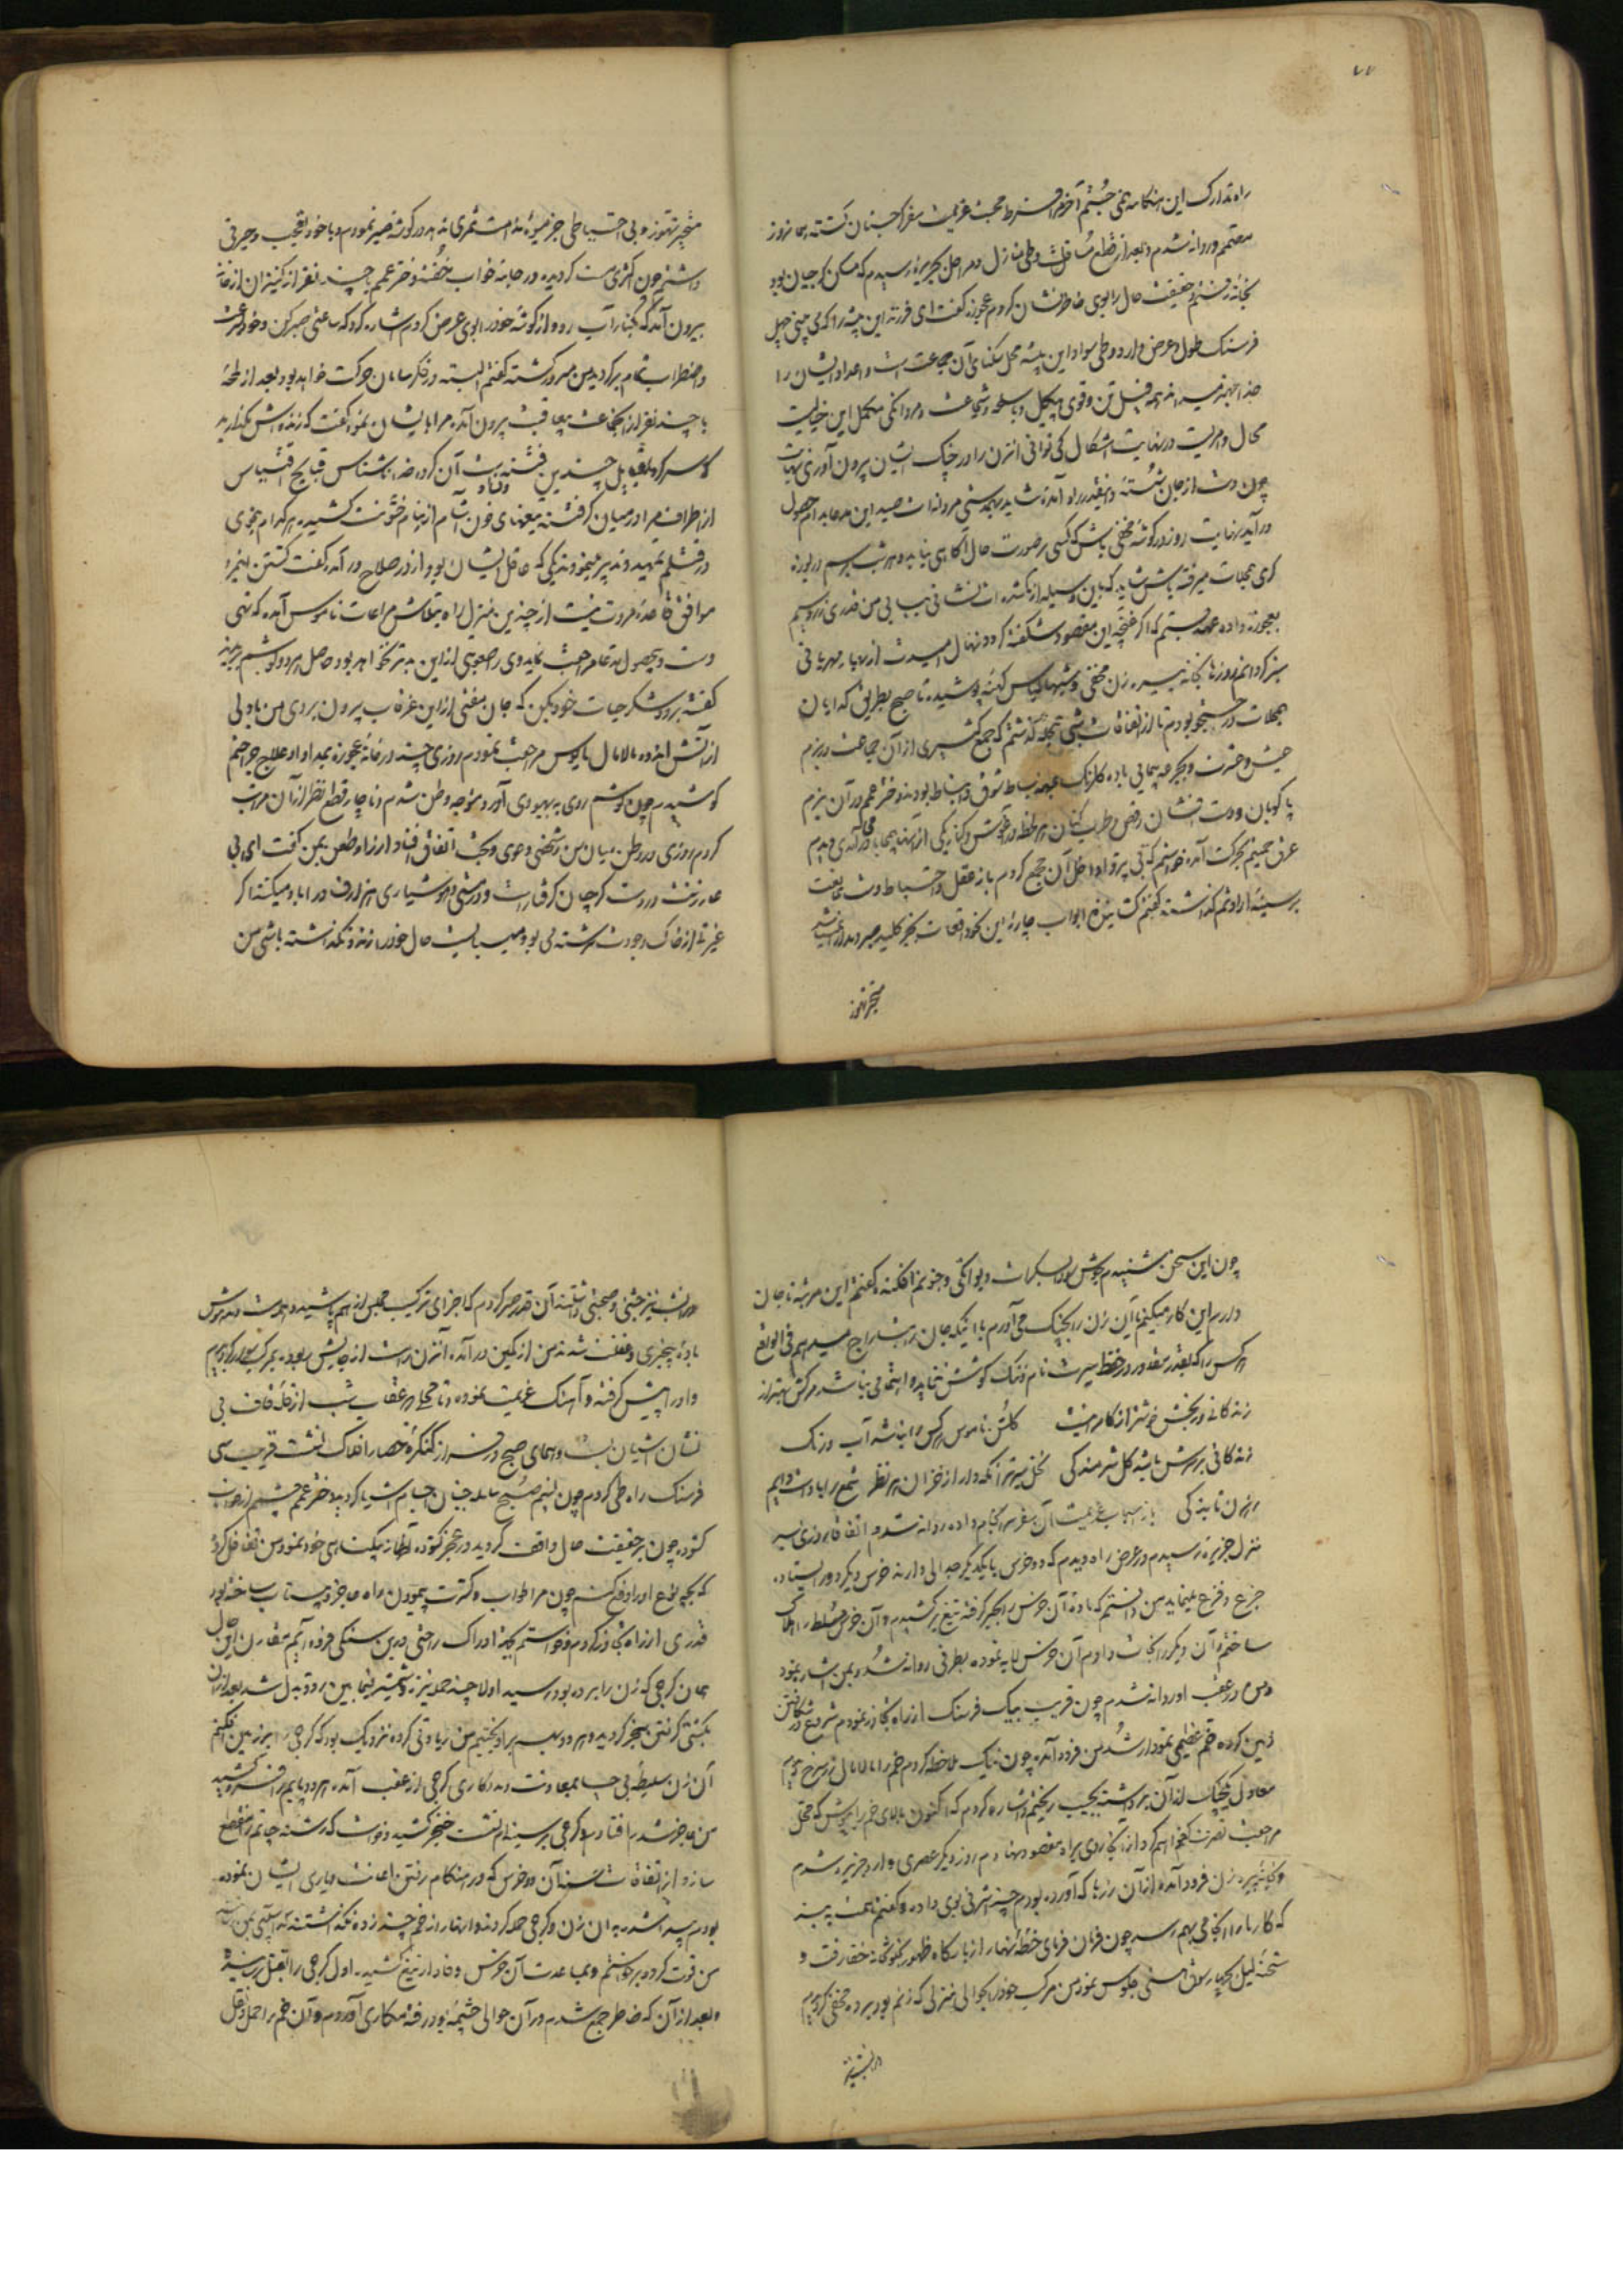 راه تدارک این هنکامه می جستم آخر از فرط محبت عزیمت سفر کرجستان کشته همانروز
مصمم روانه شدم و بعد از قطع و طی منازل و مراحل بجزیره رسیدم که مسکن کرجیان بود
بخانه رفتم و حقیقت حال را بوی خاطرنشان کردم عجوزه کفت ای فرزند این بیشه را که می بینی چهل
فرسنک طول و عرض دارد و طی سواد این بیشه محل سکنای آن جماعت است و اعداد ایشان را
خدا بهتر میداند همه فیل تن و قوی هیکل و با سلحه و شجاعت و مردانکی مکمل این خیالیست
محال و امریست در نهایت اشکال کی توانی انزن را از چنک ایشان بیرون آوری نهایت
چون دست از جان شسته و اینقدر راه آمده شاید بهمدستی مردانه ات صید این مدعا بدام حصول
در آید نهایت روز در کوشه مخفی باش که کسی بر صورت حال آکاهی نیابد و هر شب برسم دریوزه
کری بمحلات میرفته باش شاید که باین وسیله از کمشده ات نشانی بیابی من قدری زر و سیم
بعجوزه داده عهد بستم که اکر غنچه این مقصود شکفته کردد نهال امیدت از بهار مهربانی
سبز کردانم روزها بخانه پیره زن مخفی و شبها لباس کهنه پوشیده تا صبح بطریق کدایان
بمحلات در جستجو بودم تا از اتفاقات شبی بمحله کذشتم که جمع کثیری از آن جماعت در بزم
عیش و عشرت و بجرعه پیمایی باده کلرنک بساط شوق و انبساط بودند و دختر عمم در آن بزم
پا کوبان و دست افشان رقص و طرب کنان
عرق بحرکت آمده خواستم که باز عقل و احتیاط دست ممانعت
بر سینه ارادتم کذاشته کفتم کشایش ابواب چاره این نحو واقعات بجز کلید صبر و مدارا نباشد
منجر تهور
منجر تهور و بی احتیاطی جز میوه ندامت ثمری ندهد در کوشه صبر نمودم و با خود تعجب و حیرتی
داشتم چون اکثری مست کردیده در جامه خواب خفتند دختر عمم با چند نفر از کنیزان از خانه
بیرون آمد که بکنار آب رود از کوشه خود را بوی عرض کردم اشاره کرد که ساعتی صبر کن و خود بسرعت
و اضطراب تمام برکردید من مسرور کشته کفتم البته در فکر سامان حرکت خواهد بود بعد از لمحه
با چند نفر از آن جماعت بیرون آمده مرا بایشان نمود کفت که زنده اش نکذارید
که سر کرده چندین فتنه و فساد است آن کروه خدا ناشناس قبایح اقتباس
از اطراف مرا در میان کرفتند تیغهای خون آشام از نیام خشونت کشیدند هر کدام بنحوی
در قتلم تمهید و تدبیر مینمودند یکی که عاقل ایشان بود از در صلاح در آمد کفت کشتن این مرد
موافق قاعده مروت نیست از چندین منزل راه بتلاش مراعات ناموس آمده که تهی
دست و بی حصول مدعا مراجعت نماید وی را صعوبتی از این بدتر نخواهد بود حاصل هر دو کوشم بریدند
کفتند برو و شکر حیات خود بکن که جان مفتی از این غرقاب بیرون بردی من با دلی
از آتش اندوه مالامال مایوس مراجعت نمودم روزی چند در خانه عجوزه بمداوا و علاج جراحتم
کوشیدم چون کوشم روی به بهبودی آورد متوجه وطن شدم و ناچار قطع نظر از آن مراتب
کردم روزی در وطن میان من و شخصی دعوی و بحث اتفاق افتاد از راه طعن بمن کفت ای بی
عار زنت در دست کرجیان کرفتار است و در مستی و هوشیاری هزار حرف در اباد میکند اکر
غیرتی از خاک وجودت سرشته می بود میبایست حال خود را زنده نکذاشته باشی من
چون این سخن شنیدم جوش دیوانکی و جنونم افکند و کفتم این مرتبه تا جان
در سر این کار میکنم یا آن زن را بچنک می آورم یا اینکه جان بتاراج میدهم فی الواقع
هر کس را که بقدر مقدور در حفظ سیرت نام و ننک کوشش ننماید و اهتمامی نباشد مرکش بهتر از
زندکانی و خوشتر از کامرانیست کلشن ناموس هر کس را نباشد آب و رنک
زندکانی بر سرش باشد کل شرمندکی
باز اسباب عزیمت آن سفر سرانجام داده روانه شدم اتفاقا روزی بسر
منزل جزیره رسیدم در عرض راه دیدم که دو خرس با یکدیکر جدالی دارند خرس دیکر دور ایستاده
جزع و فزع مینماید من دانستم که ماده آن خرس را بجبر کرفته تیغ برکشیدم و آن خرس مسلط را هلاک
ساختم و آن دیکر را نجات دادم آن خرس لابه نموده بطرفی روانه شد و بمن اشاره نمود
من در عقب او روانه شدم چون قریب بیک فرسنک از راه تجاوز نمودم شروع در شکافتن
زمین کرده خم عظیمی نمودار شد من فرود آمده چون نیک ملاحظه کردم خم را مالامال زر سرخ دیدم
معادل کنجک از آن برداشته بجیب ریختم و اشاره کردم که اکنون بالای خم را بپوش که محل
مراجعت تصرف خواهم کرد از آنجا روی براه مقصود نهادم روز دیکر عصری وارد جزیره شدم
و بخانه پیره زن فرود آمده از آن زرها که آورده بودم چند اشرفی بوی داده و کفتم همت به بند
که کار ما را انجامی بهم رسد چون فرمان فرمای خطه نهار از بارکاه ظهور بخلوتخانه خفا رفت و
شحنه لیل بچهار سوق هستی جلوس نمود من مرکب خود را بحوالی منزلی که زنم بود برده مخفی کردیدم
در آنشب نیز
در آنشب نیز جشنی و صحبتی داشتند آن قدر صبر کردم که اجزای ترکیب مجلس از هم پاشیده مست و مدهوش
باده بیخبری و غفلت شدند من از کمین در آمده آنزن را مست از جایش ربوده بمرکب سوار کردیدم
و او را پیش کرفته و آهنک عزیمت نموده و تا محلی که عقاب شب از قله قاف بی
نشان آشیان بست و همای صبح در فراز کنکره حصار افلاک نشست قریب سی
فرسنک راه طی کردم چون نسیم صبح سلسله جنبان اجسام اشیا کردید دختر عمم چشم از خواب
کشوده چون بر حقیقت حال واقف کردید در عجز کشوده اظهار بیکناهی خود نمود من تغافل کرده
که بچه نوع او را دفع کنم چون مرا خواب و کثرت پیمودن راه عاجز و بیتاب ساخته بود
قدری از راه تجاوز کردم و خواستم که ادراک راحتی در بن سنکی فرود آیم مقارن این حال
همان کرجی که زن را برده بود رسید اولا چند حمله نیزه و شمشیر فیمابین رد و بدل شد بعد از آن
بکشتی کرفتن منجر کردیده هر دو بهم بر آویختیم من زیادتی کرده نزدیک بود که کرجی را بر زمین افکنم
آن زن سلیطه بی حیا بمعاونت و مددکاری کرجی از عقب آمده هر دو پایم را فرو کشید
من عاجز شدم افتادم کرجی بر سینه ام نشست خنجر کشید و خواست که رشته حیاتم را منقطع
سازد از اتفاقات حسنه آن دو خرس که در هنکام رفتن اعانت و یاری ایشان نموده
بودم پیدا شدند به آن زن و کرجی حمله کردند و انها را زخم چند زده نکذاشتند که آسیبی بمن رسد
من قوت کرده برخواستم و بمساعدت آن خرس وفادار تیغ کشیده اول کرجی را بقتل رسانیدم
و بعد از آن که خاطر جمع شدم در آن حوالی چشمه بود رفته مکاری آوردم و آن خم را حمل و نقل